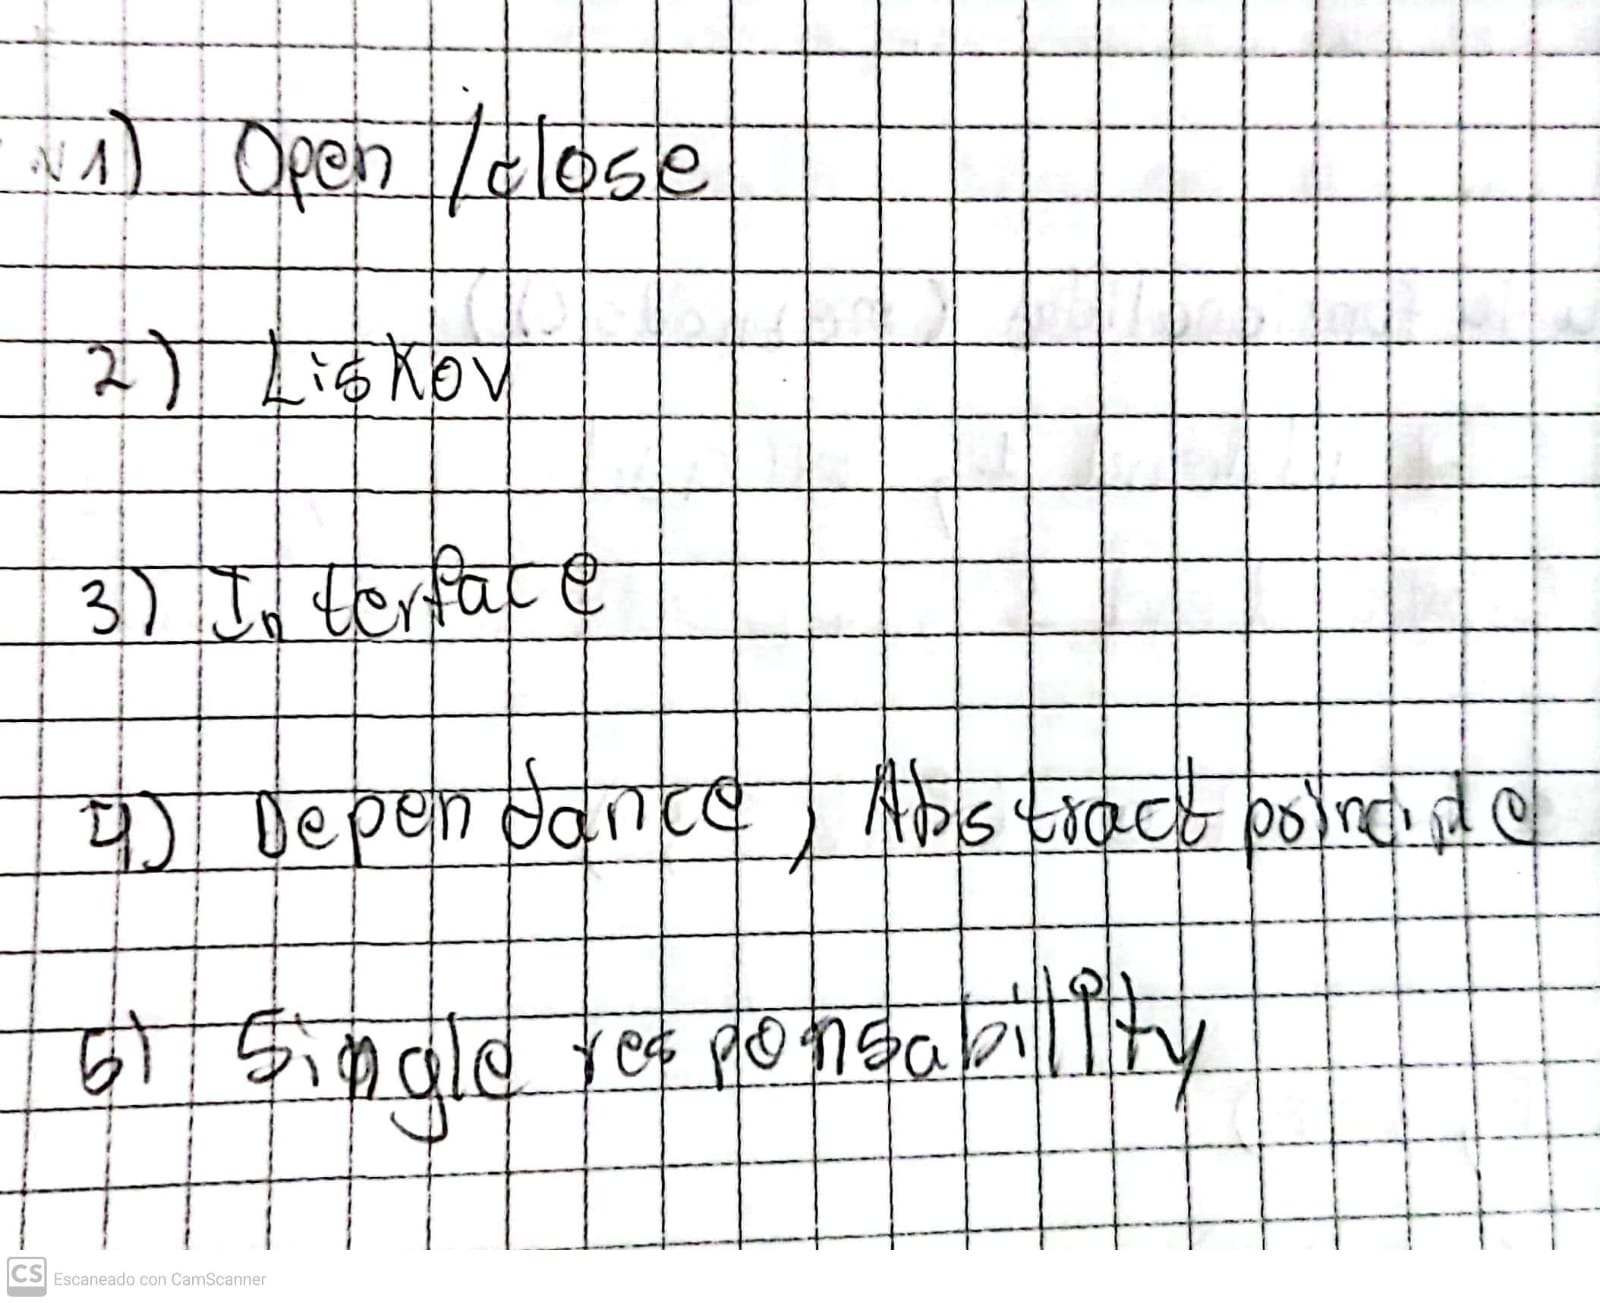 1) Open / close
2) Liskov
3) Interface
4) Dependance, Abstract principle
5) Single responsability
CS Escaneado con CamScanner